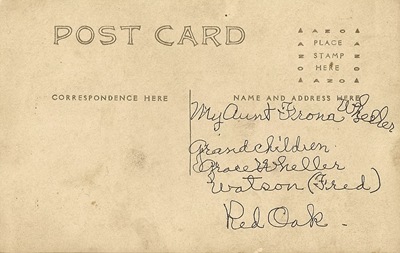 POST CARD
AZO
PLACE
STAMP
HERE
AZO
CORRESPONDENCE HERE
NAME AND ADDRESS HERE
My Aunt Frona Wheeler
Grandchildren
Grace Wheller
Watson (Fred)
Red Oak.